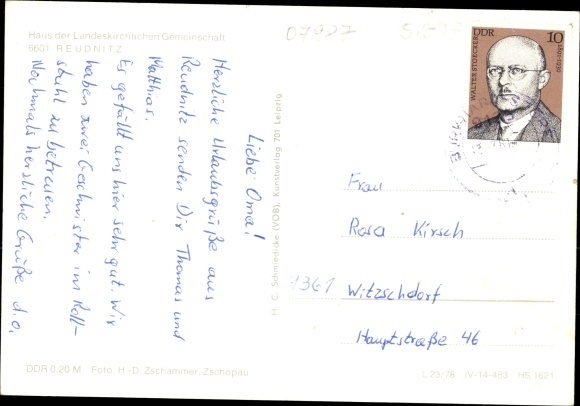 Haus der Landeskirchlichen Gemeinschaft
6601 REUDNITZ
07927
Liebe Oma!
Herzliche Urlaubsgrüße aus
Reudnitz senden Dir Thomas und
Matthias.
Es gefällt uns hier sehr gut. Wir
haben zwei Geschwister im Roll-
stuhl zu betreuen.
Nochmals herzliche Grüße d.O.
H. C. Schmiedicke (VOB), Kunstverlag 701 Leipzig
DDR 10
WALTER STOECKER
1891-1939
Frau
Rosa Kirsch
9361 Witzschdorf
Hauptstraße 46
DDR 0,20 M Foto: H.-D. Zschammer, Zschopau
L 23/78 IV-14-483 HS 1621